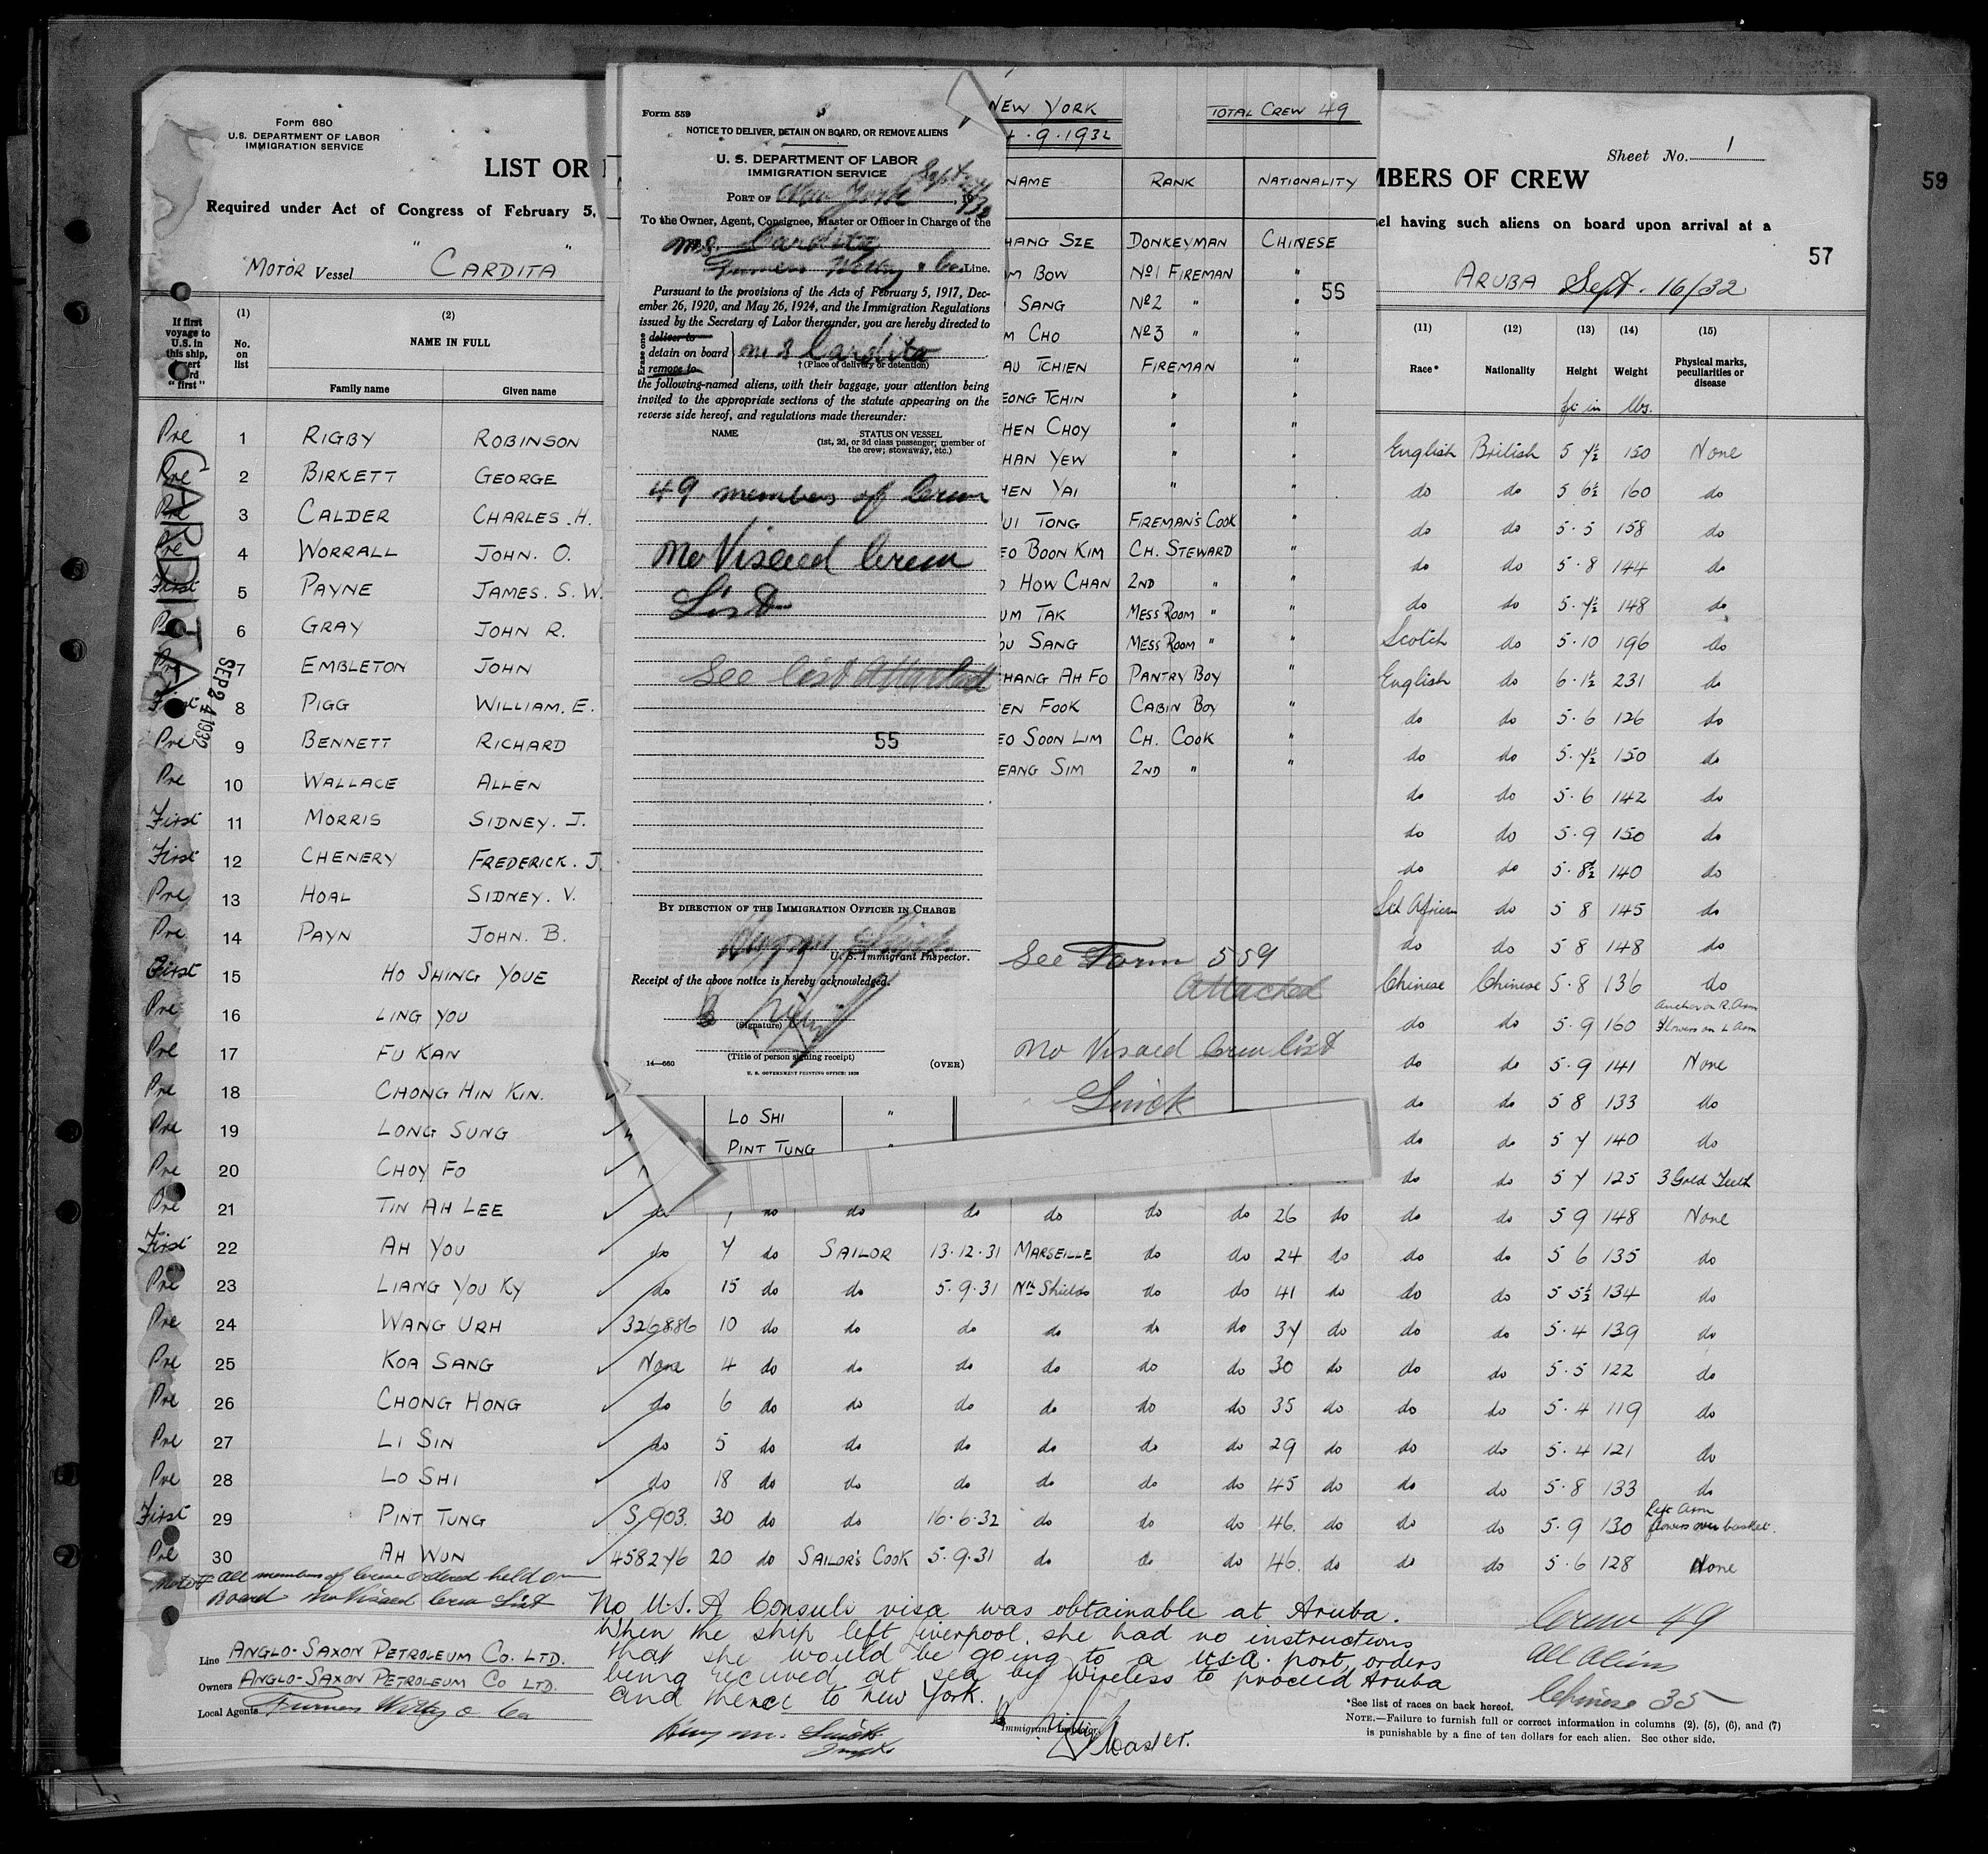 Form 680
U.S. DEPARTMENT OF LABOR
IMMIGRATION SERVICE
LIST OR
Required under Act of Congress of February 5,
MOTOR Vessel " CARDITA "
If first voyage to U.S. in this ship, "first"
(1) No. on list
(2) NAME IN FULL
Family name Given name
CARDITA
SEP 24 1932
Pre 1 RIGBY ROBINSON
Pre 2 BIRKETT GEORGE
Pre 3 CALDER CHARLES. H.
Pre 4 WORRALL JOHN. O.
First 5 PAYNE JAMES. S. W.
6 GRAY JOHN R.
Pre 7 EMBLETON JOHN
First 8 PIGG WILLIAM. E.
Pre 9 BENNETT RICHARD
Pre 10 WALLACE ALLEN
First 11 MORRIS SIDNEY. J.
First 12 CHENERY FREDERICK. J
Pre 13 HOAL SIDNEY. V.
Pre 14 PAYN JOHN. B.
First 15 HO SHING YOUE
Pre 16 LING YOU
Pre 17 FU KAN
Pre 18 CHONG HIN KIN.
Pre 19 LONG SUNG
Pre 20 CHOY FO
Pre 21 TIN AH LEE do 1 do do do do do do 26 do
First 22 AH YOU do 7 do SAILOR 13.12.31 MARSEILLE do do 24 do
Pre 23 LIANG YOU KY do 15 do do 5.9.31 Nth Shields do do 41 do
Pre 24 WANG URH 326886 10 do do do do do do 37 do
Pre 25 KOA SANG None 4 do do do do do do 30 do
Pre 26 CHONG HONG do 6 do do do do do do 35 do
Pre 27 LI SIN do 5 do do do do do do 29 do
Pre 28 LO SHI do 18 do do do do do do 45 do
First 29 PINT TUNG S/903. 30 do do 16.6.32 do do do 46. do
Pre 30 AH WUN 458276 20 do SAILOR'S COOK 5.9.31 do do do 46. do
Note # All members of Crew ordered held on
Board No Visaed Crew List
Line ANGLO-SAXON PETROLEUM CO. LTD.
Owners ANGLO-SAXON PETROLEUM CO LTD.
Local Agents Furness Withy & Co
Form 559
NOTICE TO DELIVER, DETAIN ON BOARD, OR REMOVE ALIENS
U. S. DEPARTMENT OF LABOR
IMMIGRATION SERVICE
PORT OF New York Sept 24, 1932
To the Owner, Agent, Consignee, Master or Officer in Charge of the
M.S. Cardita
Furness Withy & Co. Line.
Pursuant to the provisions of the Acts of February 5, 1917, Dec-
ember 26, 1920, and May 26, 1924, and the Immigration Regulations
issued by the Secretary of Labor thereunder, you are hereby directed to
Erase one
deliver to
detain on board
remove to
M S Cardita
† (Place of delivery or detention)
the following-named aliens, with their baggage, your attention being
invited to the appropriate sections of the statute appearing on the
reverse side hereof, and regulations made thereunder:
NAME STATUS ON VESSEL
(1st, 2d, or 3d class passenger; member of
the crew; stowaway, etc.)
49 members of Crew
No Visaed Crew
List
See list attached
55
BY DIRECTION OF THE IMMIGRATION OFFICER IN CHARGE
U. S. Immigrant Inspector.
Receipt of the above notice is hereby acknowledged.
(Signature)
(Title of person signing receipt)
14—660 (OVER)
U. S. GOVERNMENT PRINTING OFFICE: 1929
LO SHI "
PINT TUNG "
NEW YORK TOTAL CREW 49
.9.1932
NAME RANK NATIONALITY
HANG SZE DONKEYMAN CHINESE
M BOW No1 FIREMAN "
56
SANG No2 " "
M CHO No3 " "
AU TCHIEN FIREMAN "
EONG TCHIN " "
HEN CHOY " "
HAN YEW " "
HEN YAI " "
UI TONG FIREMAN'S COOK "
EO BOON KIM CH. STEWARD "
HOW CHAN 2ND " "
UM TAK MESS ROOM " "
OU SANG MESS ROOM " "
HANG AH FO PANTRY BOY "
EN FOOK CABIN BOY "
EO SOON LIM CH. COOK "
EANG SIM 2ND " "
See Form 559
Attached
No Visaed Crew list
Quick
Sheet No. 1
MBERS OF CREW
59
el having such aliens on board upon arrival at a
57
ARUBA Sept. 16/32
(11) Race* (12) Nationality (13) Height (14) Weight (15) Physical marks, peculiarities or disease
ft in lbs.
English British 5 7½ 150 None
do do 5 6½ 160 do
do do 5.5 158 do
do do 5.8 144 do
do do 5.7½ 148 do
Scotch do 5.10 196 do
English do 6.1½ 231 do
do do 5.6 126 do
do do 5.7½ 150 do
do do 5.6 142 do
do do 5.9 150 do
do do 5.8½ 140 do
Sth African do 5 8 145 do
do do 5 8 148 do
Chinese Chinese 5.8 136 do
do do 5.9 160 Anchor on R. Arm Flowers on L Arm
do do 5.9 141 None
do do 5 8 133 do
do do 5 7 140 do
do do 5 7 125 3 Gold Teeth
do do 5 9 148 None
do do 5 6 135 do
do do 5 5½ 134 do
do do 5.4 139 do
do do 5.5 122 do
do do 5.4 119 do
do do 5.4 121 do
do do 5.8 133 do
do do 5.9 130 Left Arm flowers over basket.
do do 5.6 128 None
No U.S.A Consul visa was obtainable at Aruba.
When the ship left Liverpool, she had no instructions
that she would be going to a U.S.A. port, orders
being received at sea by wireless to proceed Aruba
and thence to New York.
Immigrant Inspector
Master.
Crew 49
All Aliens
Chinese 35
*See list of races on back hereof.
NOTE.—Failure to furnish full or correct information in columns (2), (5), (6), and (7)
is punishable by a fine of ten dollars for each alien. See other side.